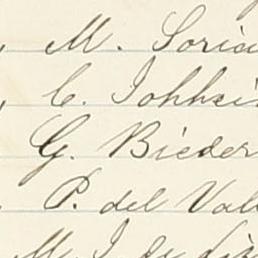 M. Soria
C. Johhei
G. Bieder
P. del Vall
M. J. de